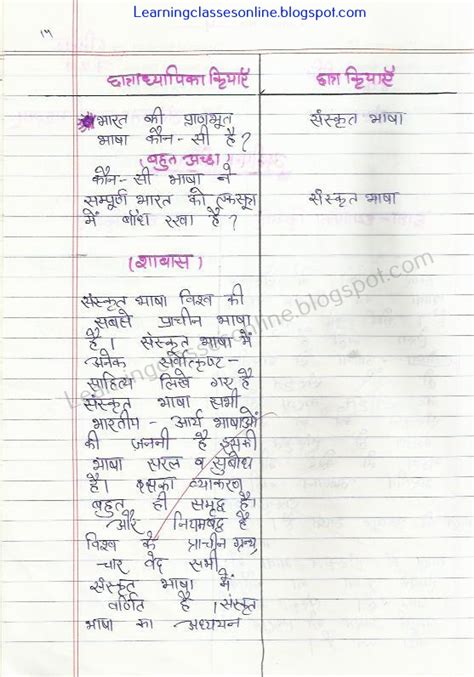 Learningclassesonline.blogspot.com
छात्राध्यापिका क्रियाएँ छात्र क्रियाएँ
भारत की प्राणभूत संस्कृत भाषा
भाषा कौन-सी है?
(बहुत अच्छा)
कौन-सी भाषा ने
सम्पूर्ण भारत को एकसूत्र संस्कृत भाषा
में बांध रखा है?
(शाबास)
संस्कृत भाषा विश्व की
सबसे प्राचीन भाषा
है। संस्कृत भाषा में
अनेक सर्वोत्कृष्ट-
साहित्य लिखे गए है
संस्कृत भाषा सभी
भारतीय-आर्य भाषाओं
की जननी है इसकी
भाषा सरल व सुबोध
है। इसका व्याकरण
बहुत ही समृद्ध है।
और नियमबद्ध है
विश्व के प्राचीन ग्रन्थ
चार वेद सभी
संस्कृत भाषा में
वर्णित है। संस्कृत
भाषा का अध्ययन
Learningclassesonline.blogspot.com